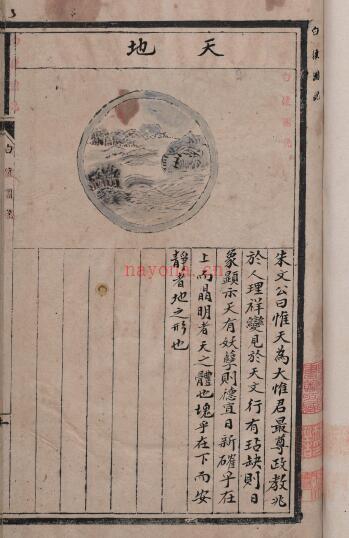 天地
朱文公曰惟天為大惟君最尊政教兆
於人理祥變見於天文行有玷缺則日
象顯示天有妖孽則德宜日新確乎在
上而晶明者天之體也塊乎在下而安
靜者地之形也
白猿圖說
nayona.cn